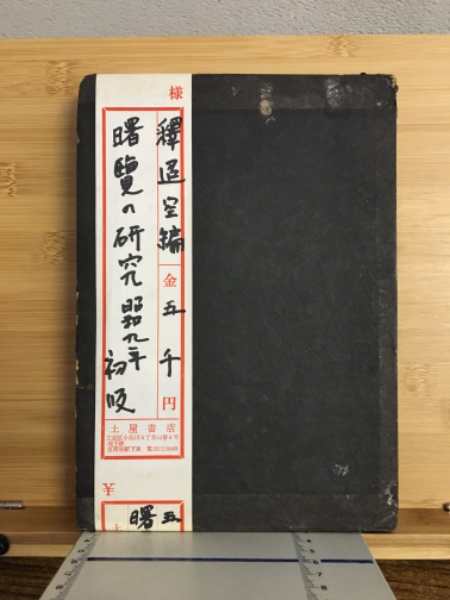 様
釋迢空編
金五千円
曙覽の研究 昭和九年初版
土屋書店
¥
五
曙
土